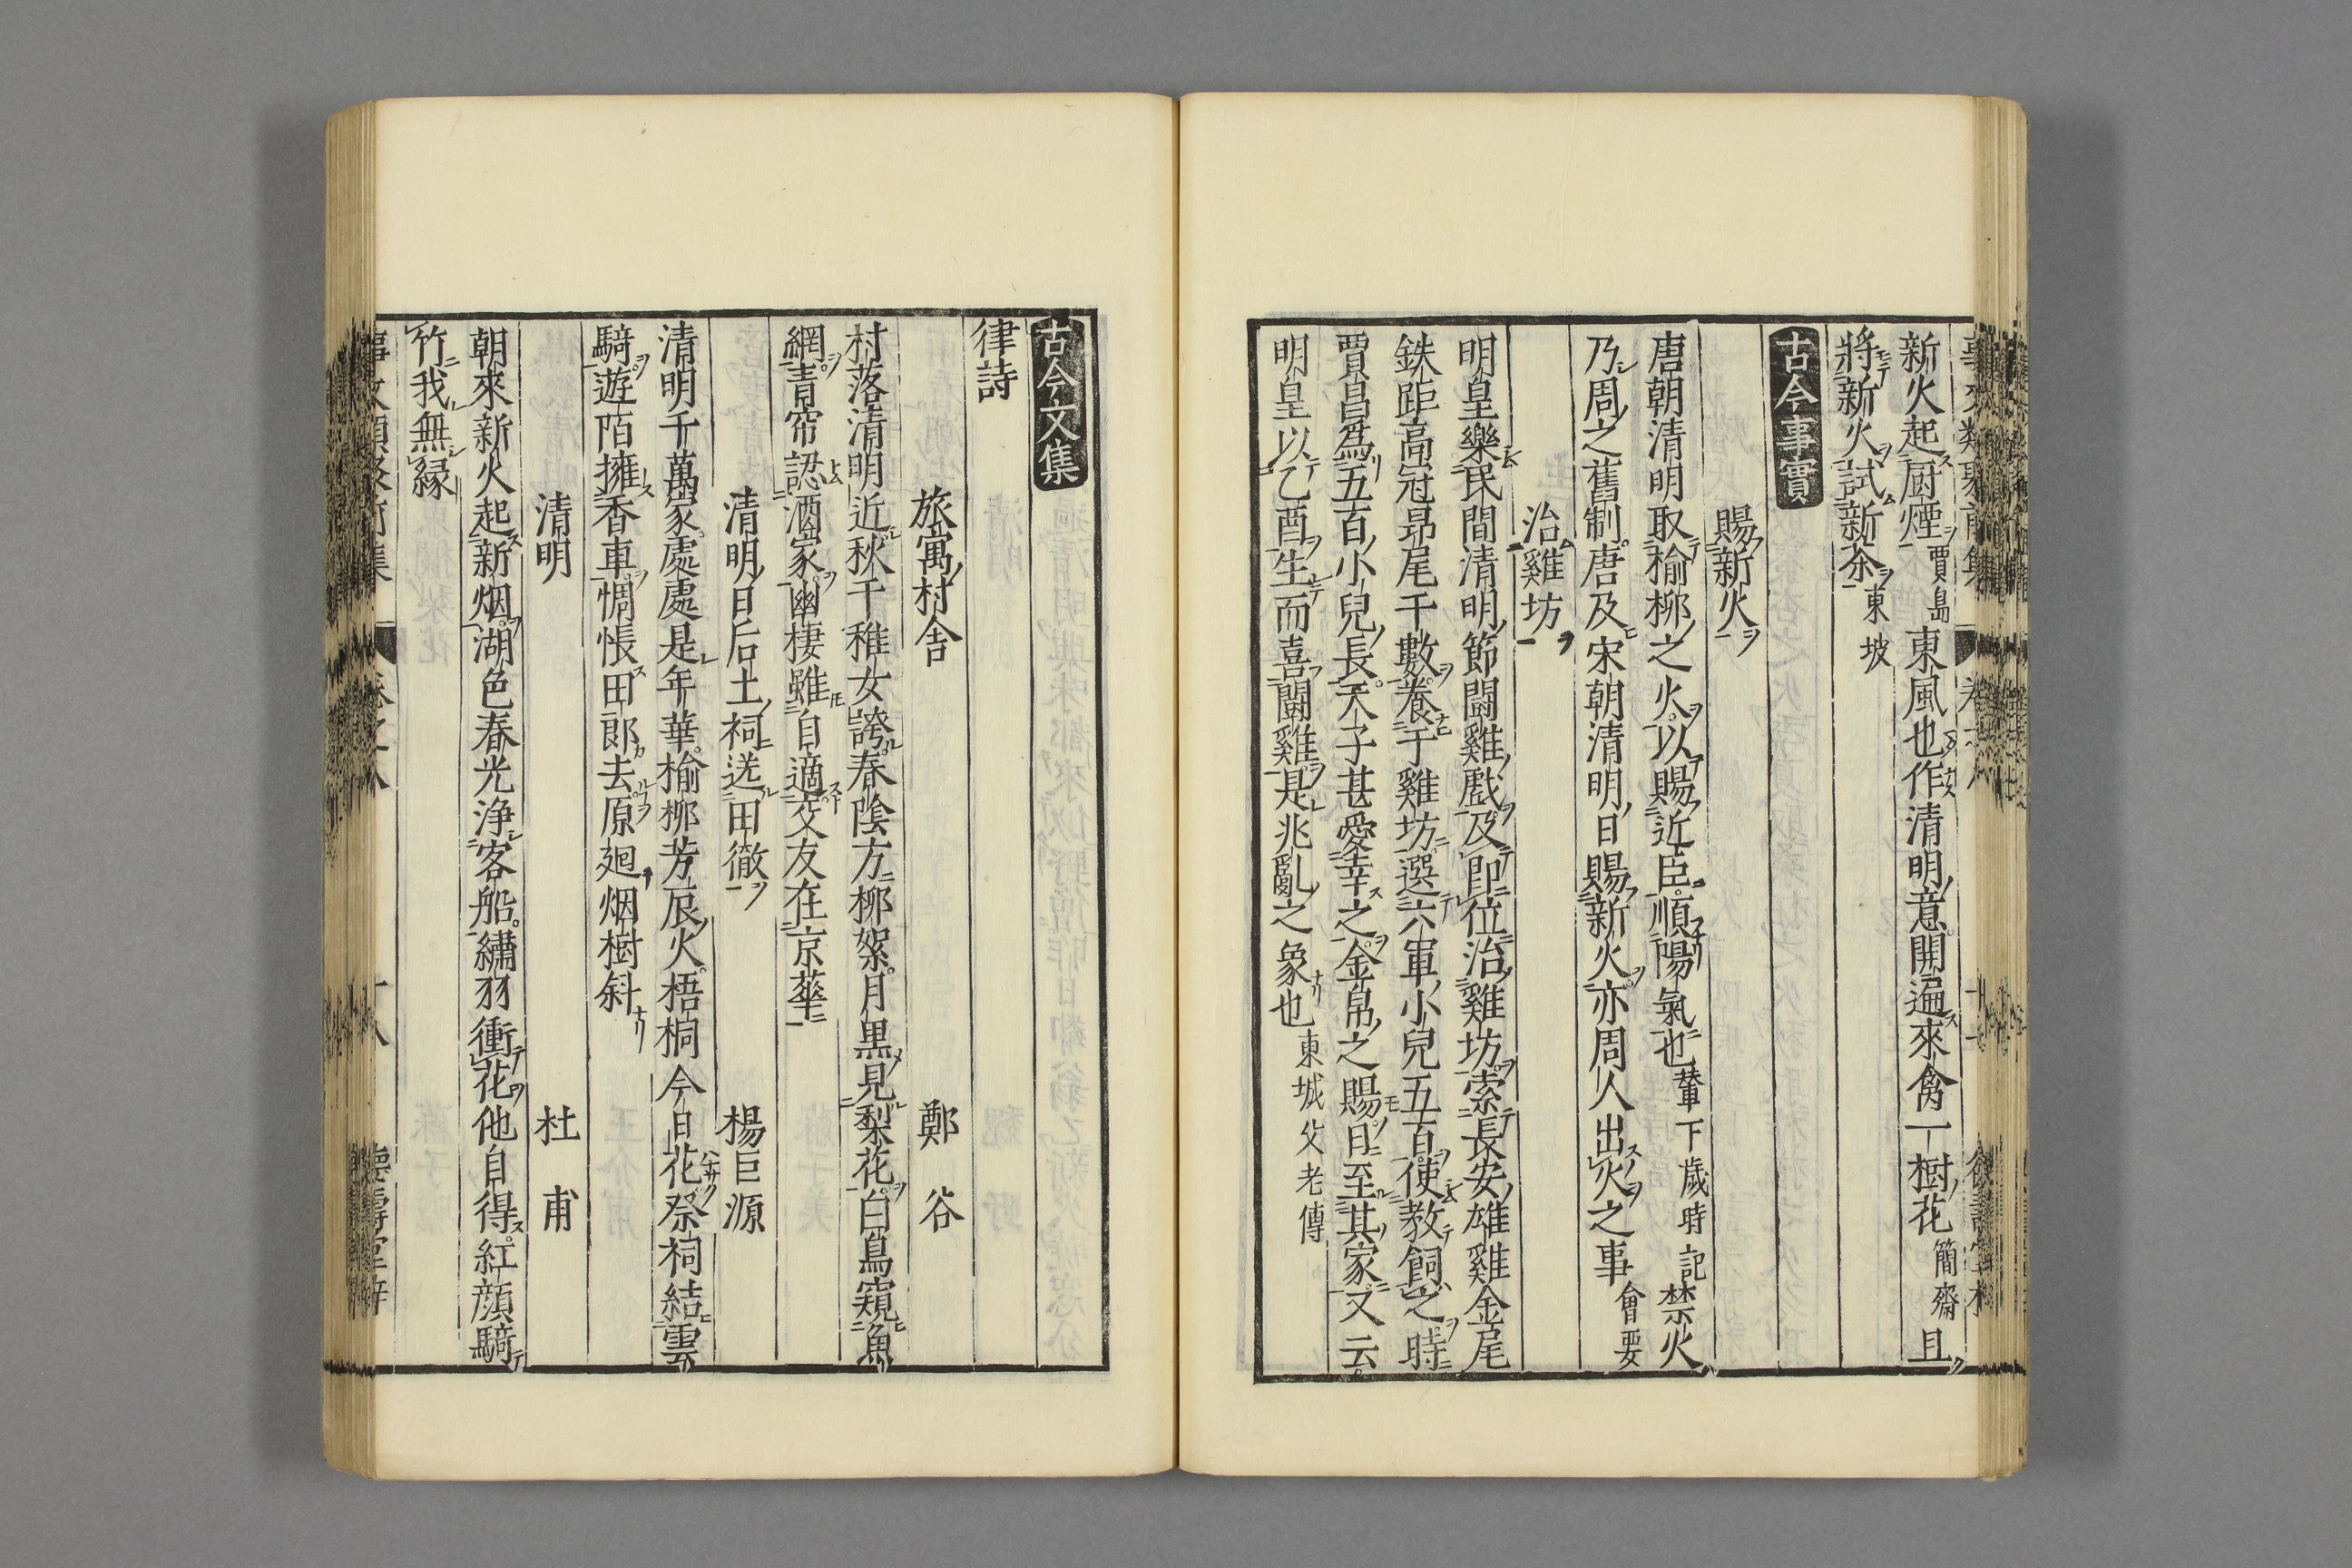 新火起厨煙賈島東風也作清明意開遍來禽一樹花簡齋且
將新火試新茶東坡
古今事實
賜新火
唐朝清明取榆柳之火以賜近臣順陽氣也輦下歲時記禁火
乃周之舊制唐及宋朝清明日賜新火亦周人出火之事會要
治雞坊
明皇樂民間清明節鬪雞戲及即位治雞坊索長安雄雞金尾
鉄距高冠昂尾千數養于雞坊選六軍小兒五百使教飼之時
賈昌為五百小兒長天子甚愛幸之金帛之賜日至其家又云
明皇以乙酉生而喜鬪雞是兆亂之象也東城父老傳
古今文集
律詩
旅寓村舍 鄭谷
村落清明近秋千稚女誇春陰方柳絮月黒見梨花白鳥窺魚
網青帘認酒家幽棲雖自適交友在京華
清明日后土祠送田徹 楊巨源
清明千萬家處處是年華榆柳芳辰火梧桐今日花祭祠結雲
騎遊陌擁香車惆悵田郎去原廻烟樹斜
清明 杜甫
朝來新火起新烟湖色春光浄客船繡羽衝花他自得紅顔騎
竹我無緣